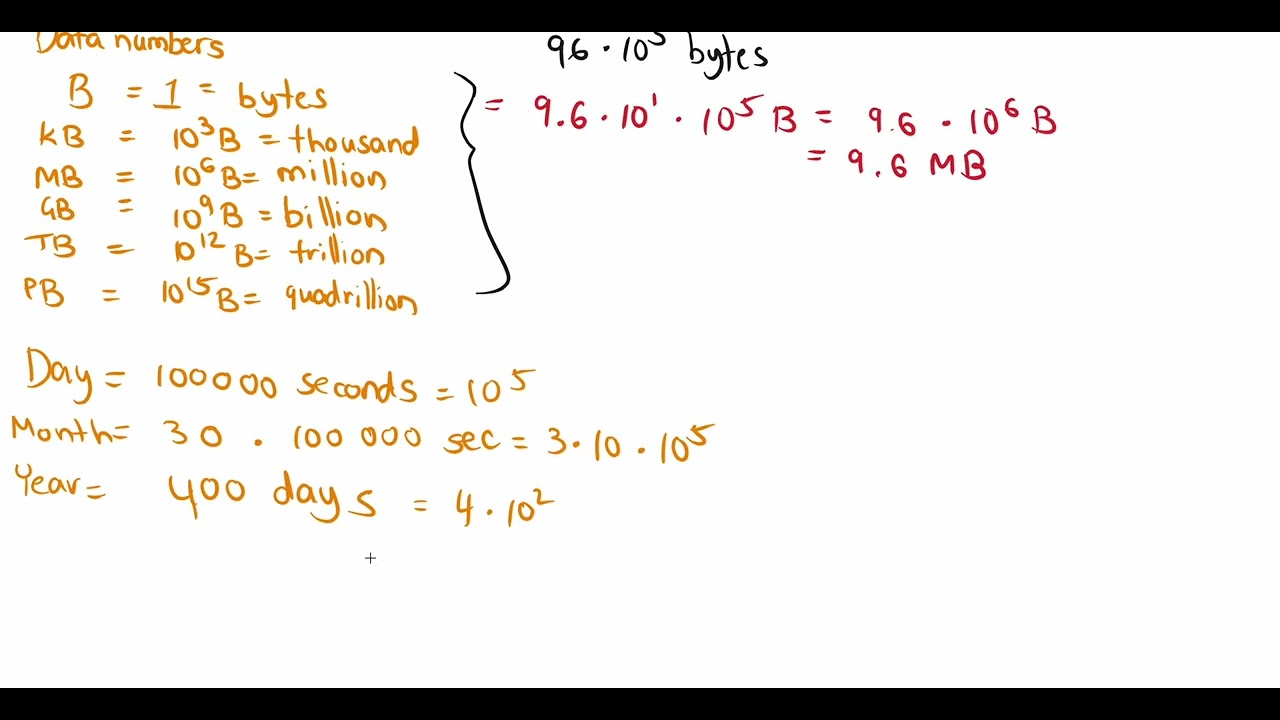 Data numbers
B = 1 = bytes
KB = 10³B = thousand
MB = 10⁶B = million
GB = 10⁹B = billion
TB = 10¹² B = trillion
PB = 10¹⁵B = quadrillion
96 · 10⁵ bytes
= 9.6 · 10¹ · 10⁵ B = 9.6 · 10⁶ B
= 9.6 MB
Day = 100000 seconds = 10⁵
Month = 30 · 100 000 sec = 3 · 10 · 10⁵
Year = 400 days = 4 · 10²